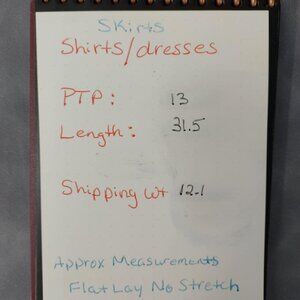 SKirts
Shirts/dresses
PTP: 13
Length: 31.5
Shipping wt 12.1
Approx Measurements
Flat Lay No Stretch